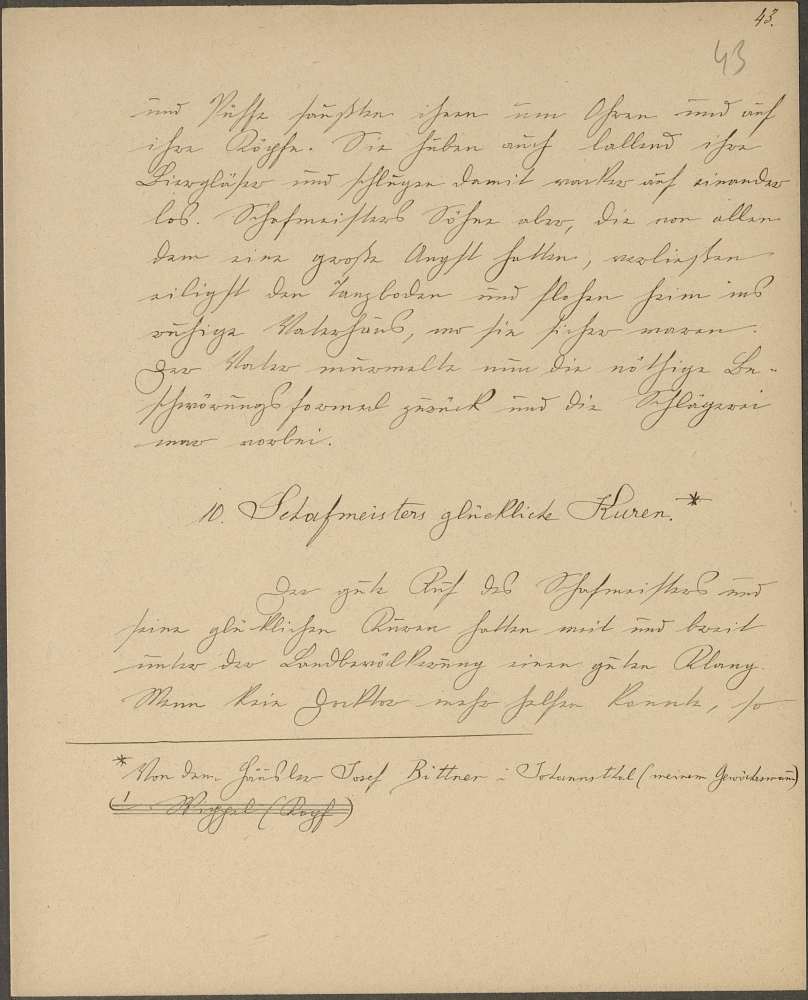 43.
43
und Püffe sausten ihnen um Ohren und auf
ihre Köpfe. Sie huben auch lallend ihre
Biergläser und schlugen damit wacker auf einander
los. Schafmeisters Söhne aber, die von allen
dem eine große Angst hatten, verließen
eiligst den Tanzboden und flohen heim ins
ruhige Vaterhaus, wo sie sicher waren.
Der Vater murmelte nun die nöthige Be-
schwörungsformel zurück und die Schlägerei
war vorbei.
10. Schafmeisters glückliche Kuren.*
Der gute Ruf des Schafmeisters und
seine glücklichen Kuren hatten weit und breit
unter der Landbevölkerung einen guten Klang.
Wenn kein Doktor mehr helfen konnte, so
* Von dem Häusler Josef Bittner i Johannsthal (meinem Gewährsmann)
(Kopf)